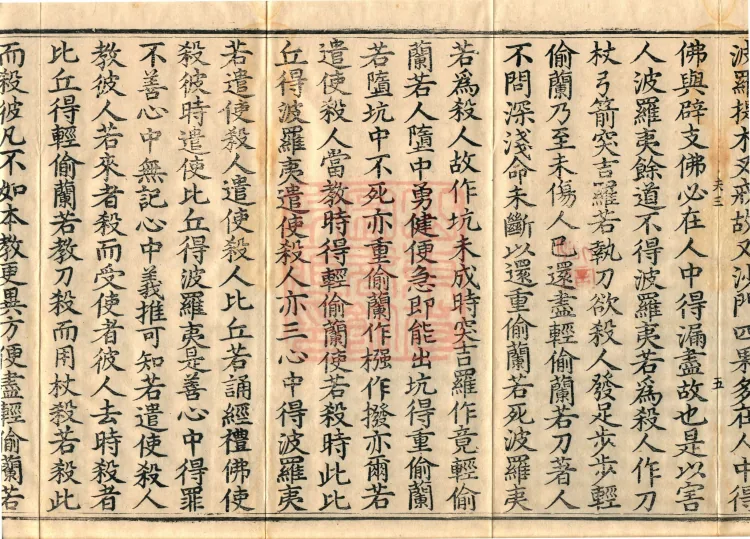 波羅提木叉戒故又沙門四果多在人中得
五
佛與辟支佛必在人中得漏盡故也是以害
人波羅夷餘道不得波羅夷若為殺人作刀
杖弓箭突吉羅若執刀欲殺人發足步步輕
偷蘭乃至未傷人已還盡輕偷蘭若刀著人
不問深淺命未斷以還重偷蘭若死波羅夷
若為殺人故作坑未成時突吉羅作竟輕偷
蘭若人墮中勇健便急即能出坑得重偷蘭
若墮坑中不死亦重偷蘭作摾作撥亦爾若
遣使殺人當教時得輕偷蘭使若殺時此比
丘得波羅夷遣使殺人亦三心中得波羅夷
若遣使殺人遣使殺人比丘若誦經禮佛使
殺彼時遣使比丘得波羅夷是善心中得罪
不善心中無記心中義推可知若遣使殺人
教彼人若來者殺而受使者彼人去時殺者
比丘得輕偷蘭若教刀殺而用杖殺若殺此
而殺彼凡不如本教更異方便盡輕偷蘭若